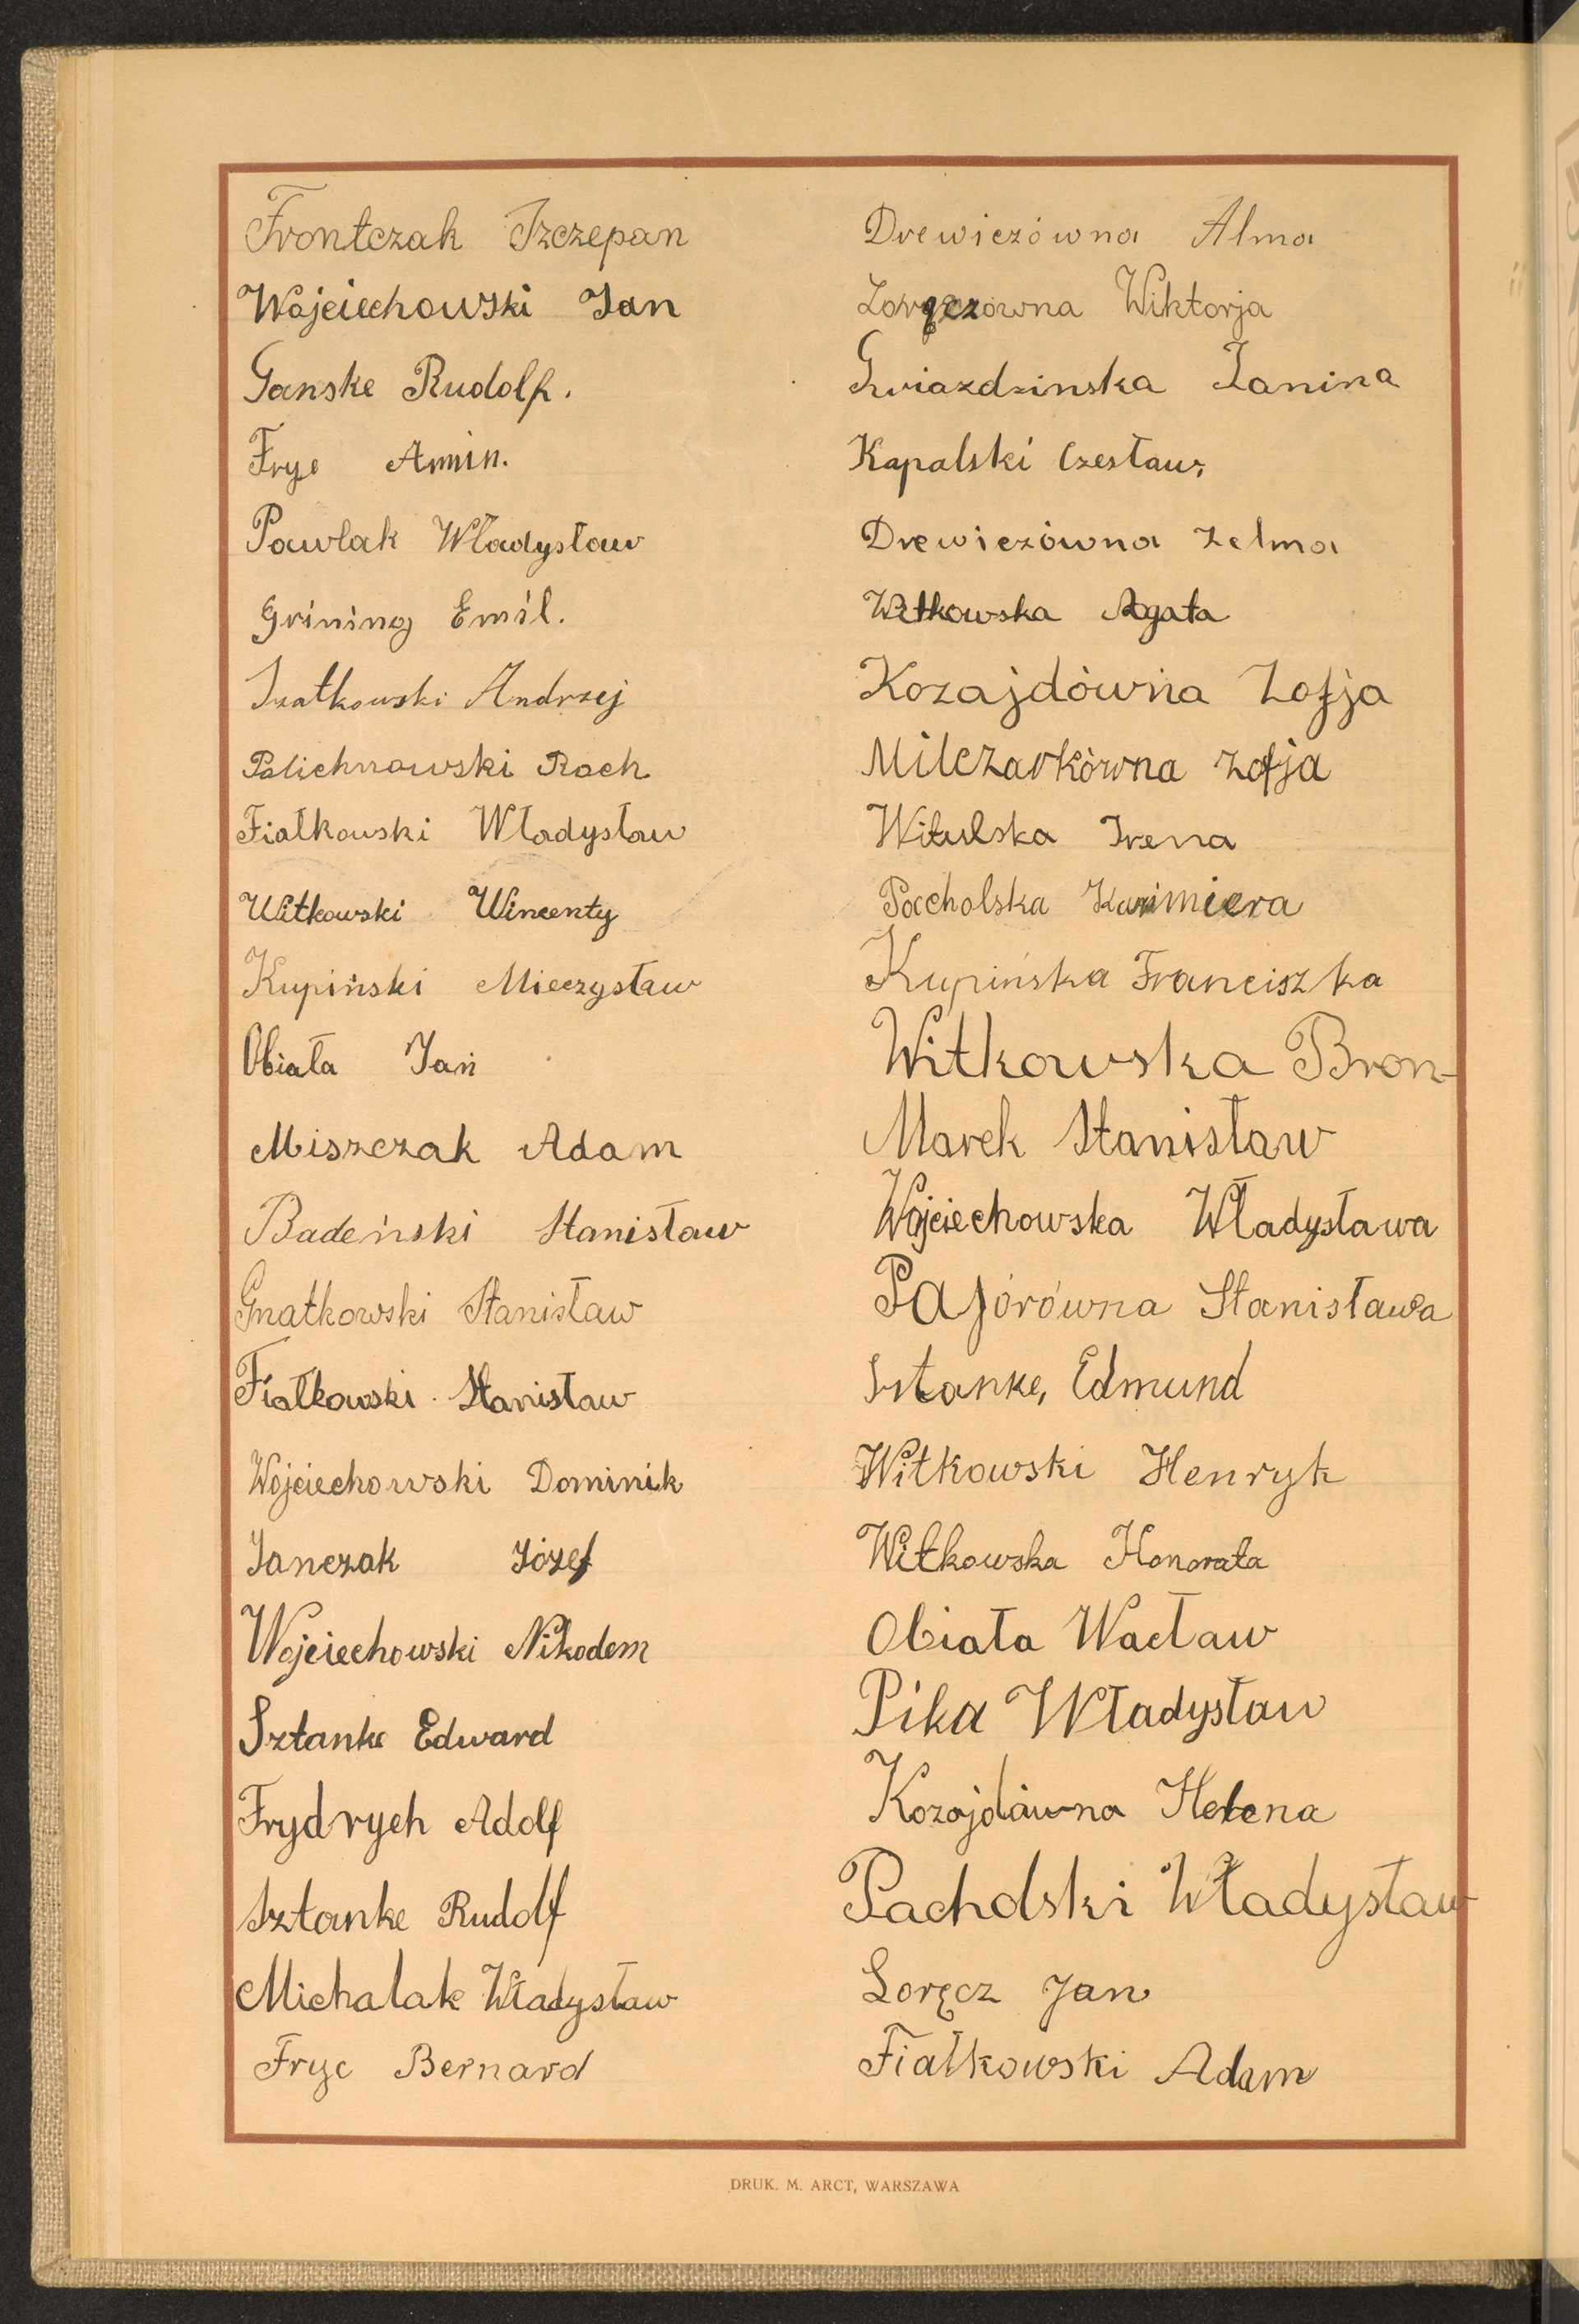 Frontczak Szczepan
Wojciechowski Jan
Ganske Rudolf.
Fryc Armin.
Pawlak Władysław
Grining Emil.
Szatkowski Andrzej
Polichnowski Roch
Fiałkowski Władysław
Witkowski Wincenty
Kupiński Mieczysław
Obiała Jan
Miszczak Adam
Badeński Stanisław
Gnatkowski Stanisław
Fiałkowski Stanisław
Wojciechowski Dominik
Janczak Józef
Wojciechowski Nikodem
Sztanke Edward
Frydrych Adolf
Sztanke Rudolf
Michalak Władysław
Fryc Bernard
Drewiczówna Alma
Loręczówna Wiktorja
Gwiazdzinska Janina
Kapalski Czesław
Drewiczówna Zelma
Witkowska Agata
Kozajdówna Zofja
Milczarkówna Zofja
Witulska Irena
Pacholska Kazimiera
Kupińska Franciszka
Witkowska Bron-
Marek Stanisław
Wojciechowska Władysława
Pajórówna Stanisława
Sztanke, Edmund
Witkowski Henryk
Witkowska Honorata
Obiała Wacław
Pika Władysław
Kozajdówna Helena
Pacholski Władysław
Loręcz Jan
Fiałkowski Adam
DRUK. M. ARCT, WARSZAWA